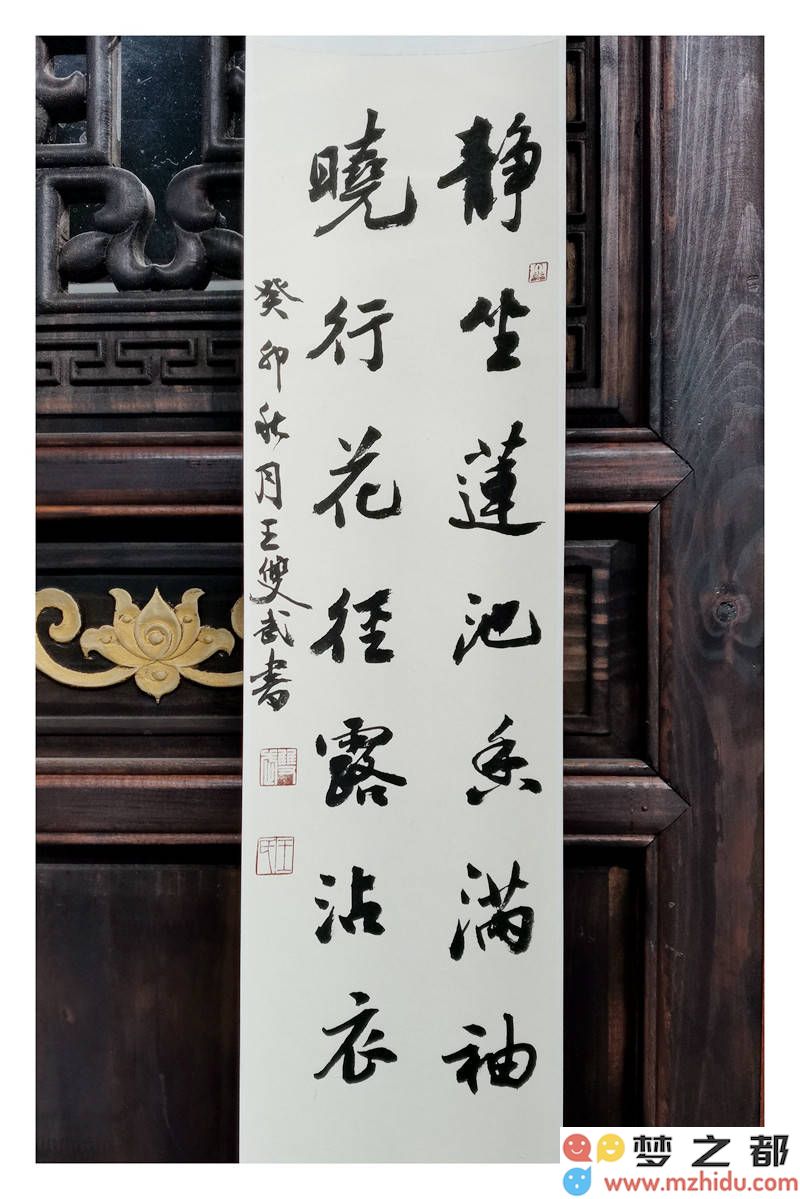 静坐蓮池香满袖
曉行花径露沾衣
癸卯秋月王雙武書
梦之都
www.mzhidu.com